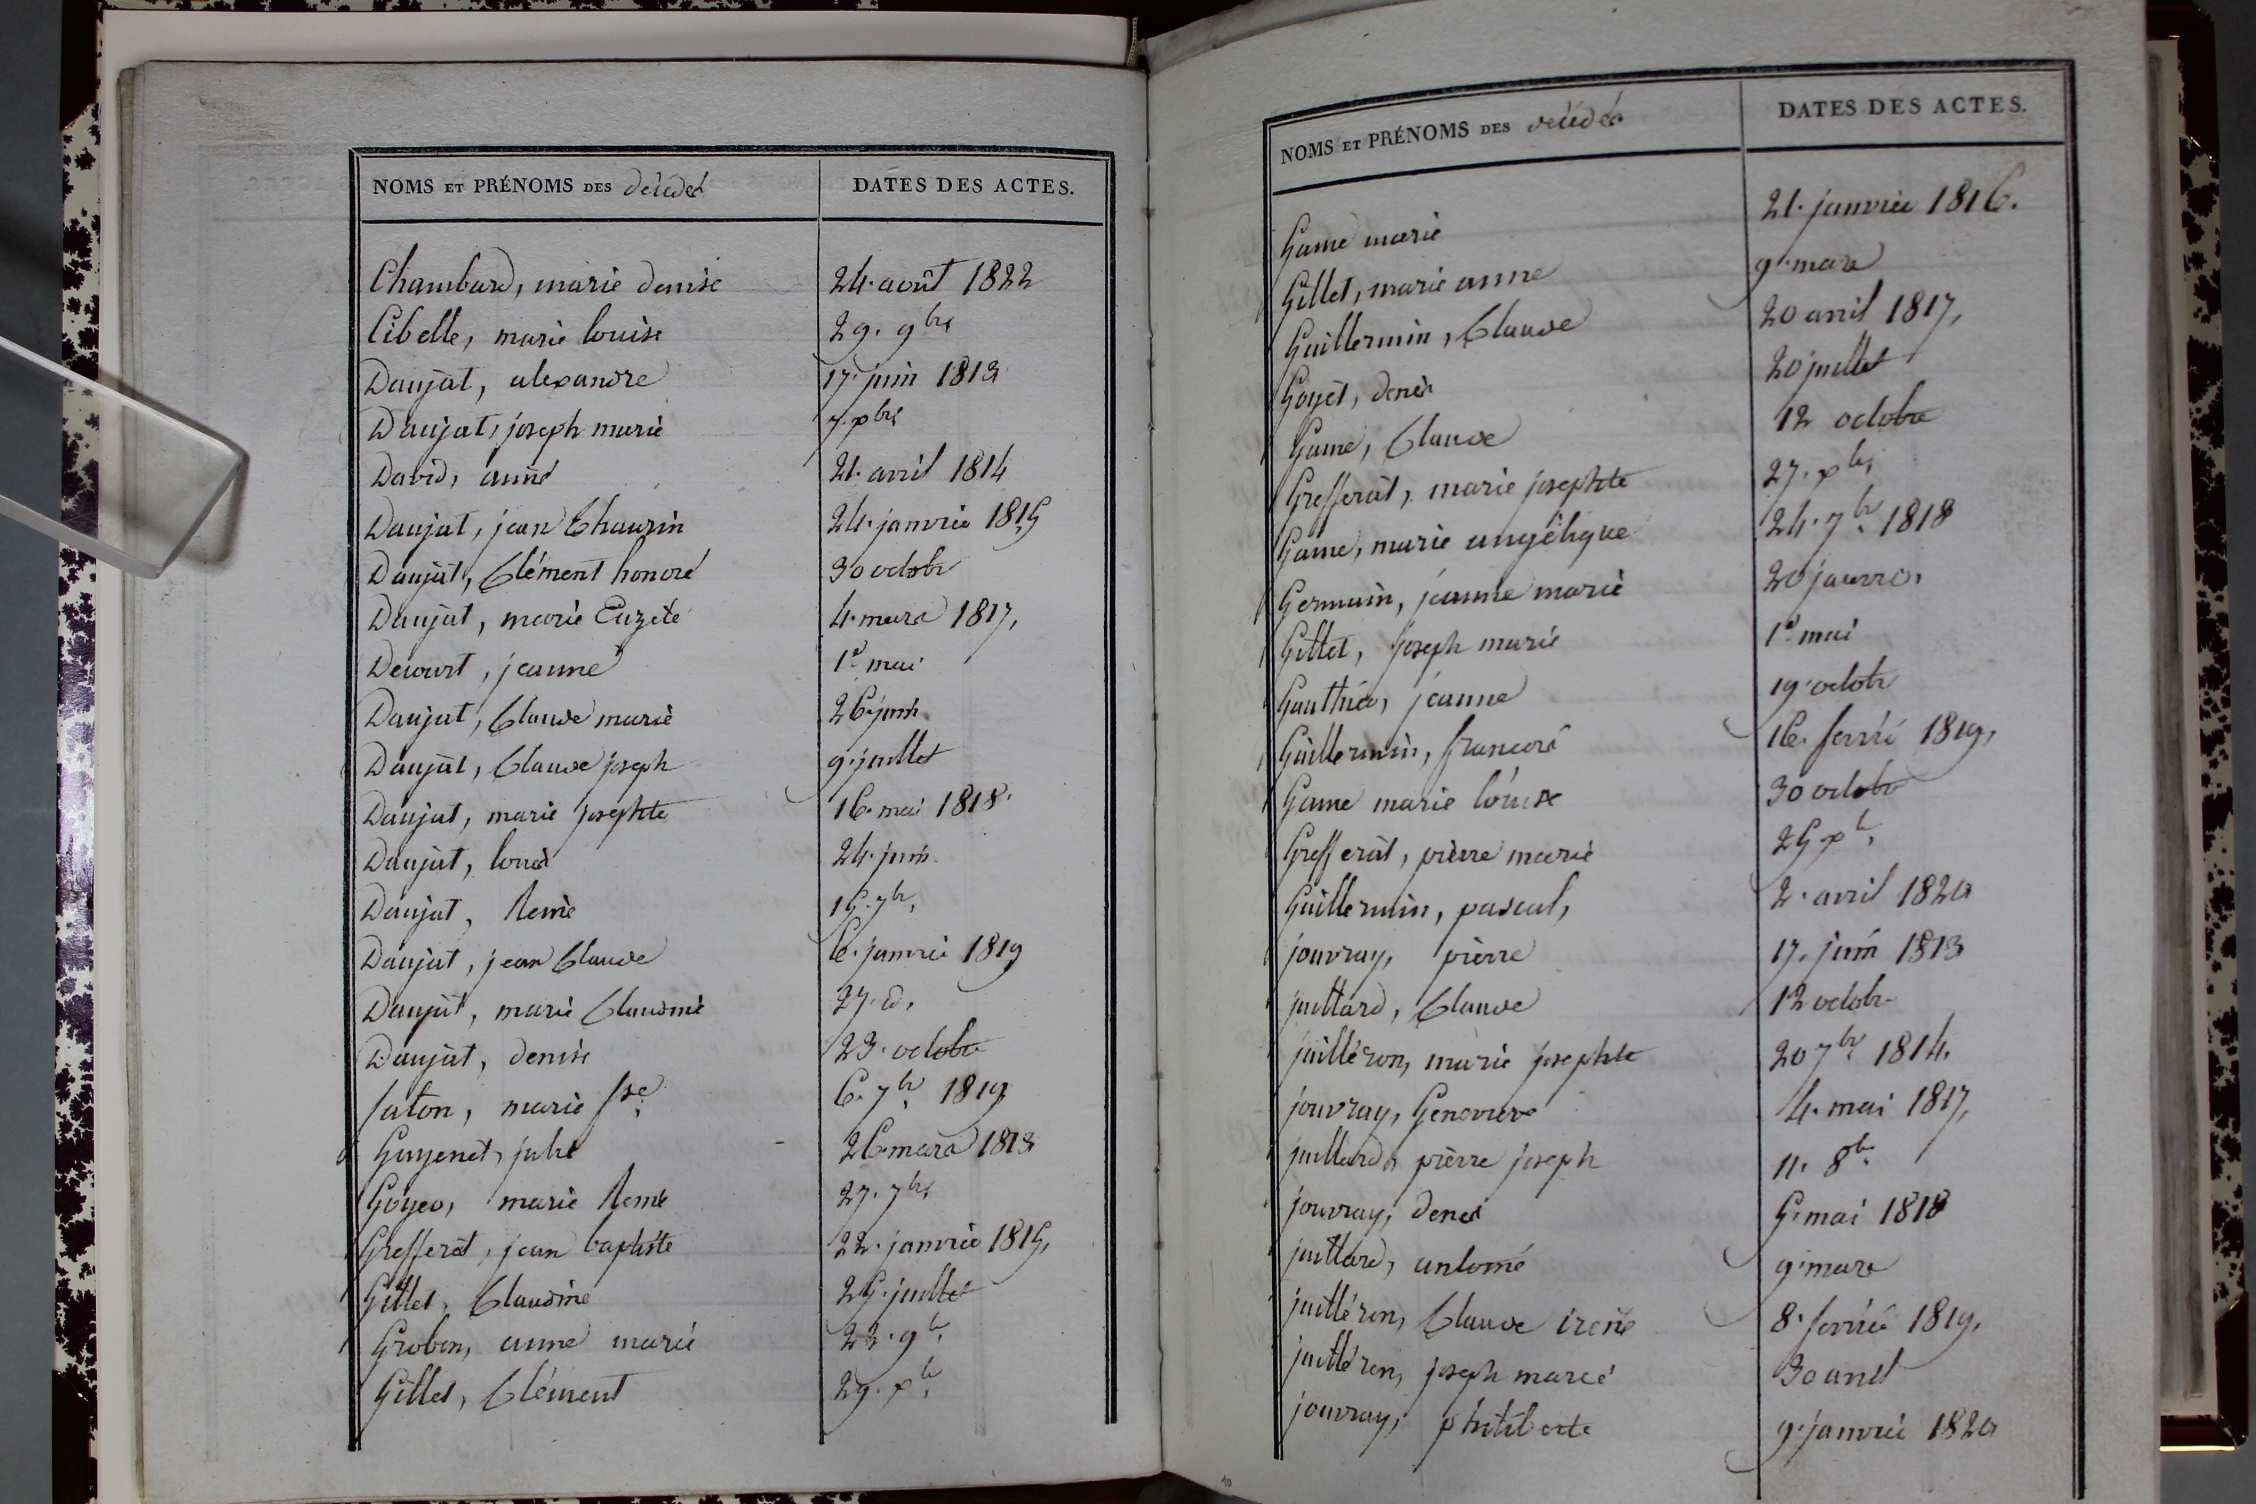 NOMS ET PRÉNOMS DES décédés DATES DES ACTES.
Chambard, marie denise 24. août 1822
Cibelle, marie louise 29. 9bre
Daujat, alexandre 17. juin 1813
Daujat, joseph marie 7. xbre
David, anne 21. avril 1814
Daujat, jean Thaurin 24. janvier 1815
Daujat, Clément honoré 30 octobre
Daujat, marie Euzete 4. mars 1817,
Decourt, jeanne 1er mai
Daujat, Claude marie 26. juin
Daujat, Claude joseph 9. juillet
Daujat, marie josephte 16. mai 1818.
Daujat, louis 24. juin
Daujat, Remie 15. 7bre
Daujat, jean Claude 6. janvier 1819
Daujat, marie Claudine 27. d.
Daujat, denise 23. octobre
faton, marie fse 6. 7bre 1819
Guyenet, julie 26 mars 1813
Goyeo, marie Remie 27. 7bre
Grefferat, jean baptiste 22. janvier 1815,
Gillet, Claudine 25. juillet
Grobon, anne marie 22. 9bre
Gillet, Clément 29. xbre
NOMS ET PRÉNOMS DES décédés DATES DES ACTES.
Game marie 21. janvier 1816.
Gillet, marie anne 9. mars
Guillermin, Claude 20 avril 1817,
Goyet, denis 20 juillet
Game, Claude 12 octobre
Grefferat, marie josephte 27. xbre
Game, marie angélique 24. 7bre 1818
Germain, jeanne marie 20 janvier
Gillet, joseph marie 1er mai
Gauthier, jeanne 19. octobre
Guillermin, francois 16. fevrier 1819,
Game marie louise 30 octobre
Grefferat, pierre marie 25 xbre
Guillermin, pascal, 2. avril 1820
jouvray, pierre 17. juin 1813
juillard, Claude 12 octobre
juilléron, marie josephte 20 7bre 1814.
jouvray, Genevieve 4. mai 1817,
juillard, pierre joseph 11. 8bre
jouvray, denis 5. mai 1818
juillard, antoine 9. mars
juilléron, Claude irené 8. fevrier 1819,
juilléron, joseph marie 30 avril
jouvray, philiberte 9. janvier 1820
10